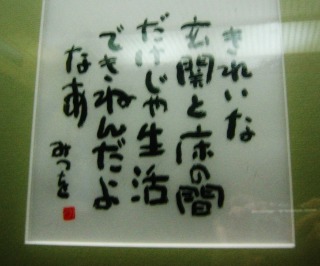 きれいな
玄関と床の間
だけじゃ生活
できねんだよ
なあ
みつを